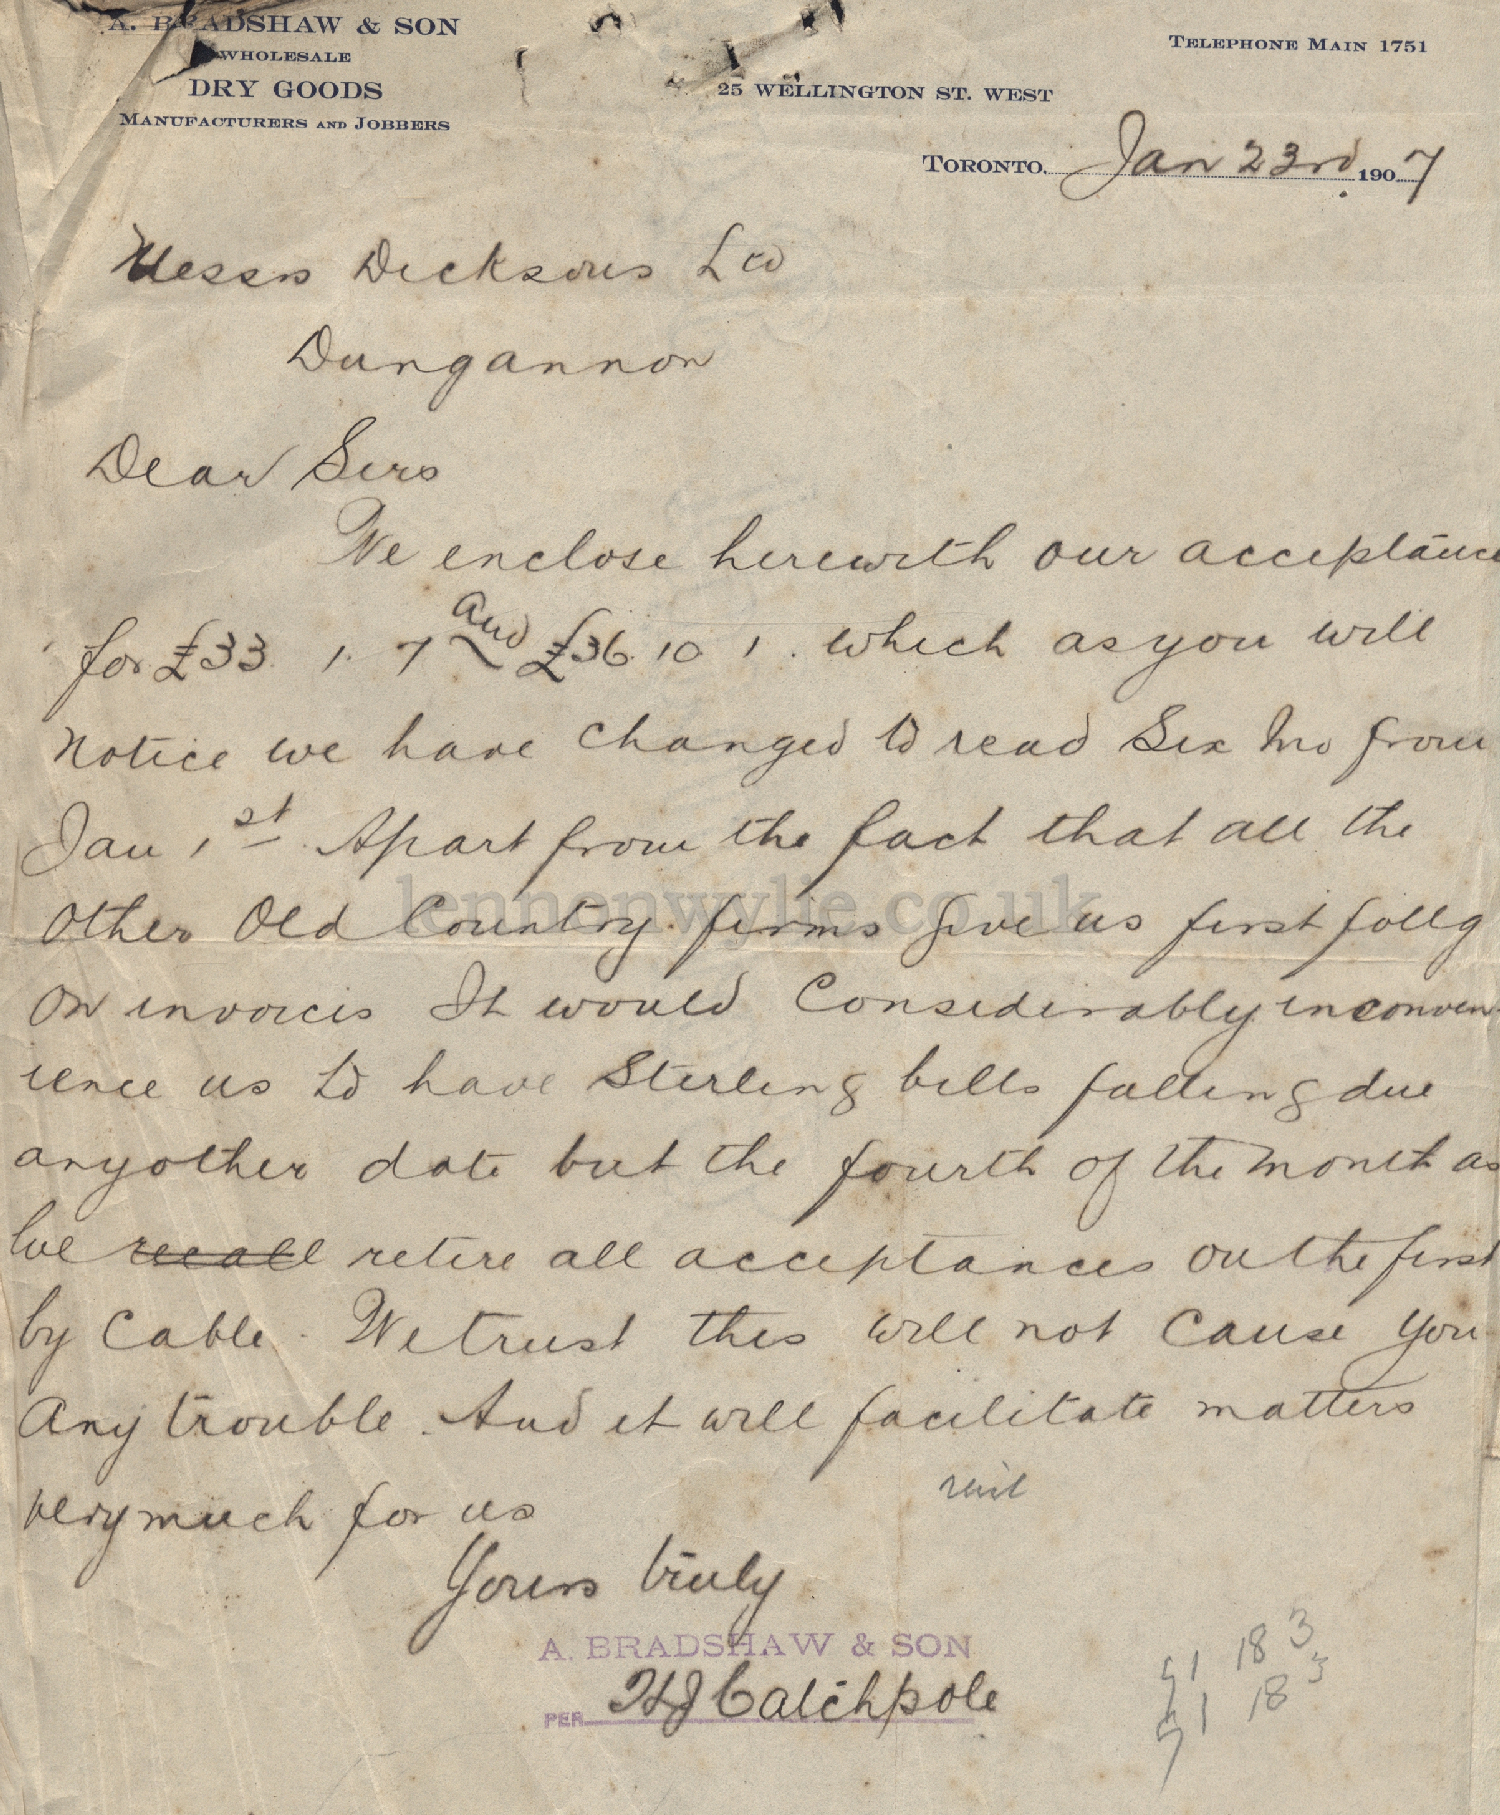 A. BRADSHAW & SON
WHOLESALE
DRY GOODS
MANUFACTURERS AND JOBBERS
TELEPHONE MAIN 1751
25 WELLINGTON ST. WEST
TORONTO. Jan 23rd 1907
Messrs Dicksons Ltd
Dungannon
Dear Sirs
We enclose herewith our acceptance
for £33. 1. 7 and £36. 10 1. which as you will
notice we have changed to read Six Mo from
Jan 1st. Apart from the fact that all the
other Old Country firms give us first follg
on invoices It would Considerably inconven-
ience us to have Sterling bills falling due
any other date but the fourth of the month as
we recall retire all acceptances on the first
by Cable. We trust this will not cause you
any trouble. And it will facilitate matters
very much for us
Yours truly
A. BRADSHAW & SON
PER HJ Catchpole
18 3
18 3
lennonwylie.co.uk